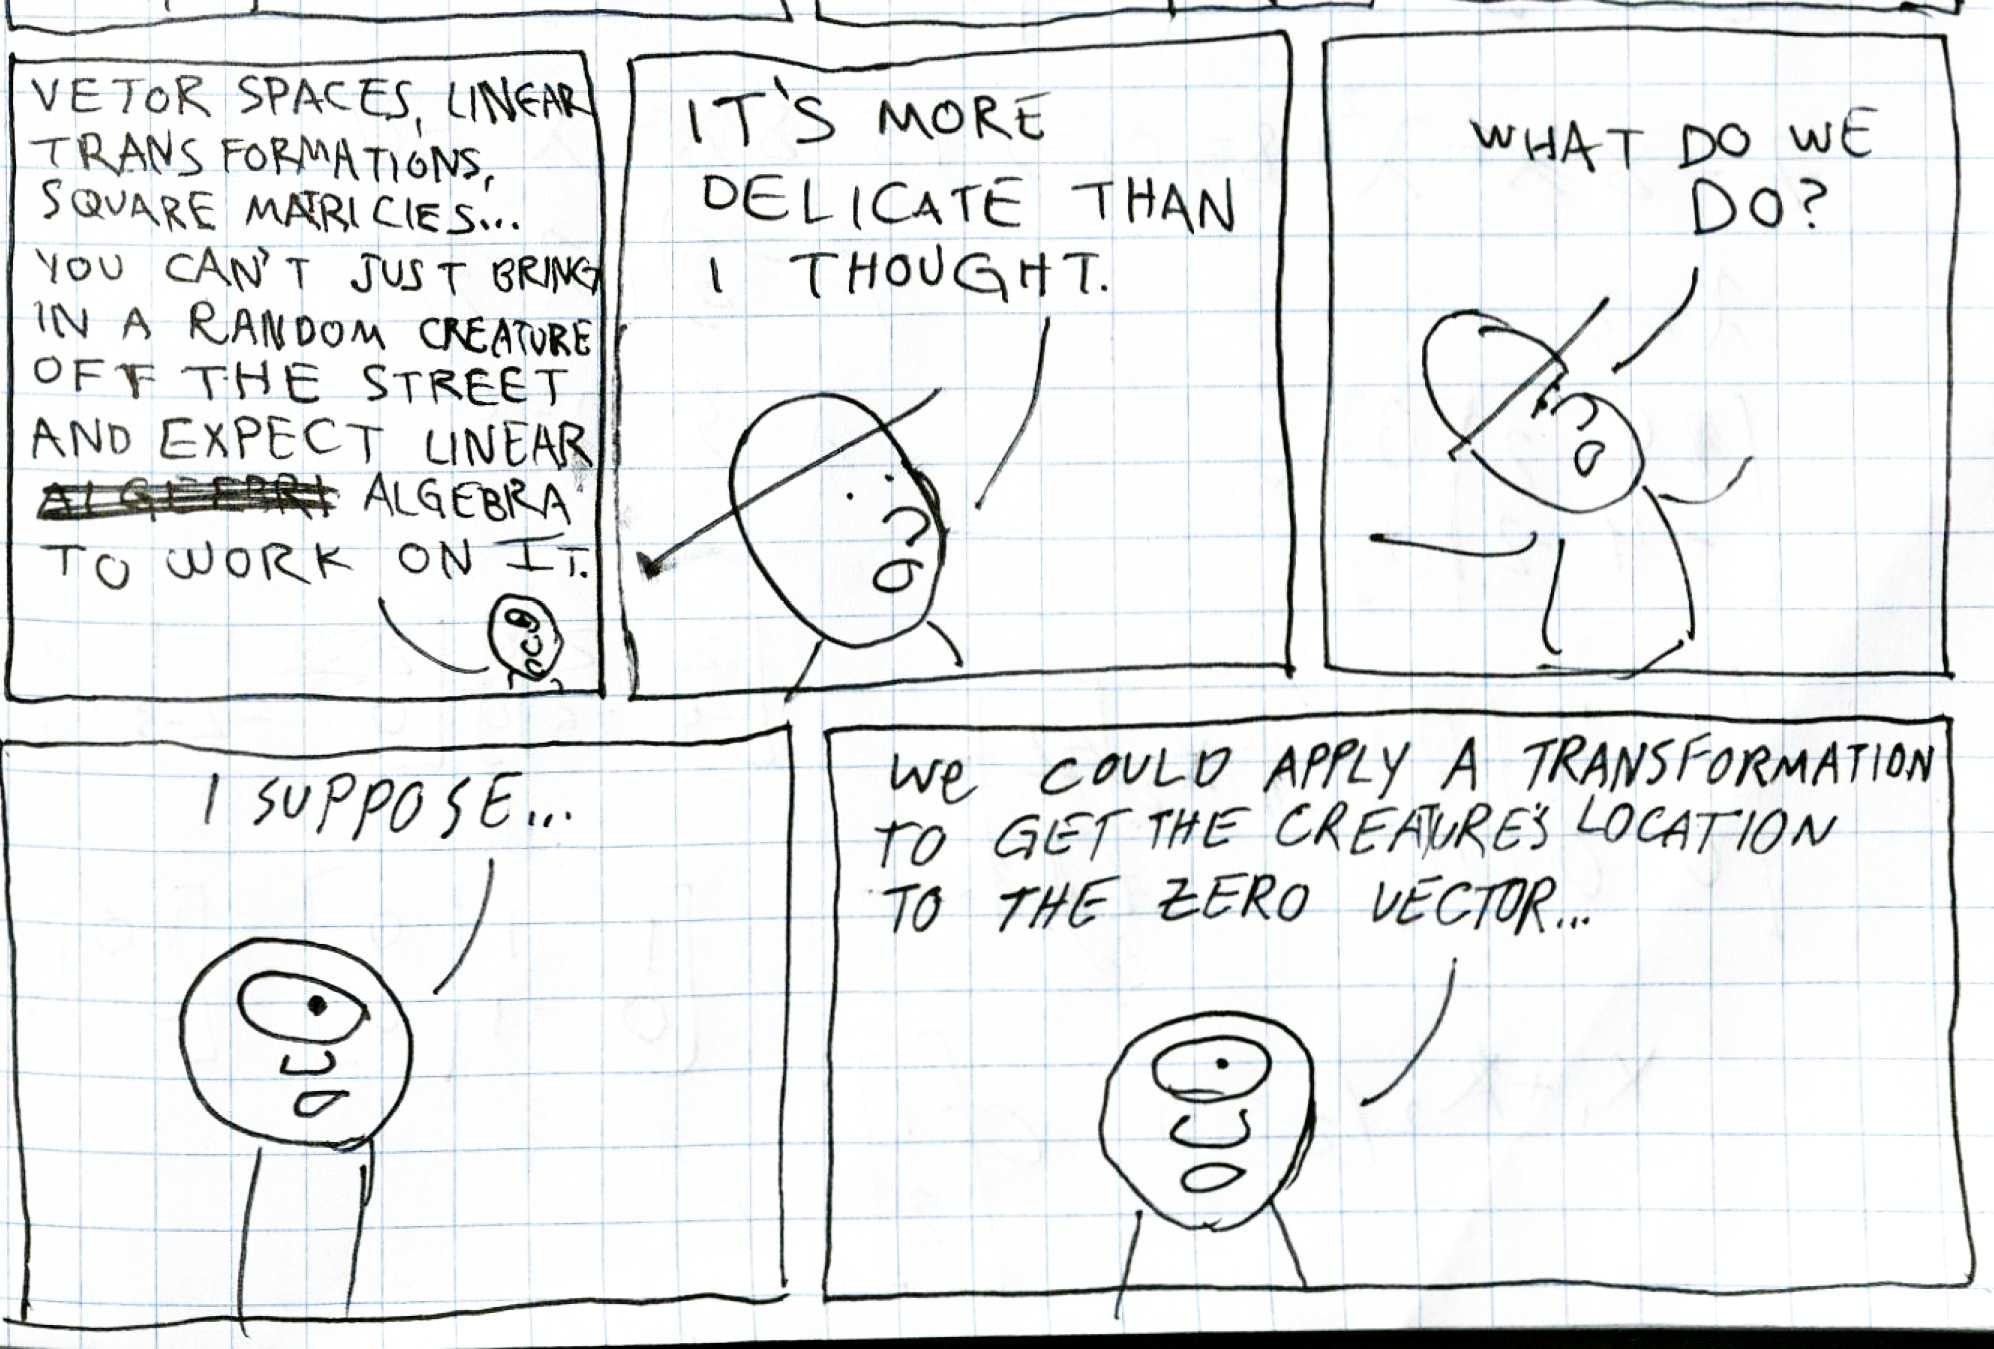 VETOR SPACES, LINEAR
TRANSFORMATIONS,
SQUARE MATRICIES...
YOU CAN'T JUST BRING
IN A RANDOM CREATURE
OFF THE STREET
AND EXPECT LINEAR
ALGEBRA
TO WORK ON IT.
IT'S MORE
DELICATE THAN
I THOUGHT.
WHAT DO WE
DO?
I SUPPOSE...
We COULD APPLY A TRANSFORMATION
TO GET THE CREATURE'S LOCATION
TO THE ZERO VECTOR...